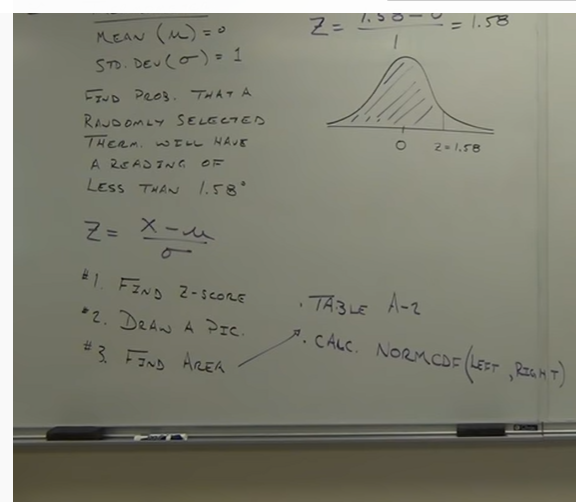 MEAN (μ) = 0
STD. DEV (σ) = 1
FIND PROB. THAT A
RANDOMLY SELECTED
THERM. WILL HAVE
A READING OF
LESS THAN 1.58°
Z = X - μ
σ
#1. FIND Z-SCORE
#2. DRAW A PIC.
#3. FIND AREA
Z = 1.58 - 0 = 1.58
1
0 Z=1.58
. TABLE A-2
. CALC. NORMCDF(LEFT, RIGHT)